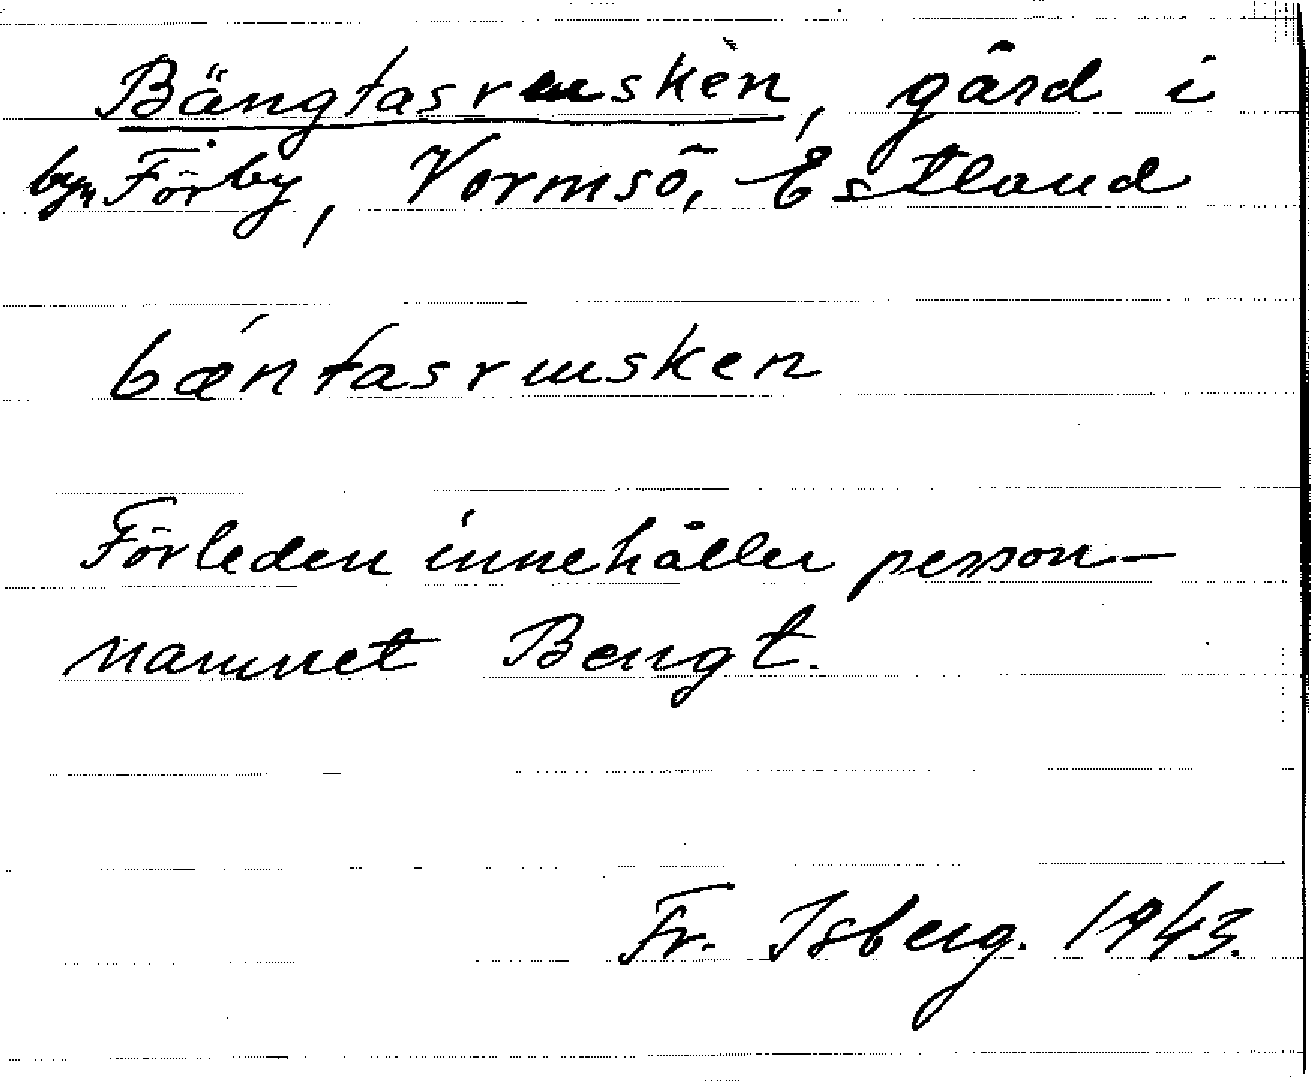 Bängtasrusken, gård i
byn Förby, Vormsö, Estland
bǽntasrɯsken
Förleden innehåller person-
namnet Bengt.
Fr. Isberg. 1943.